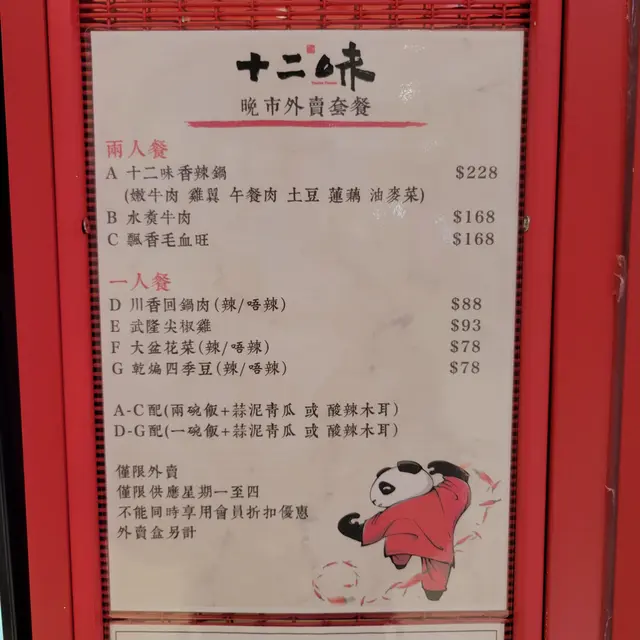 十二味
晚市外賣套餐
兩人餐
A 十二味香辣鍋 $228
(嫩牛肉 雞翼 午餐肉 土豆 蓮藕 油麥菜)
B 水煑牛肉 $168
C 飄香毛血旺 $168
一人餐
D 川香回鍋肉(辣/唔辣) $88
E 武隆尖椒雞 $93
F 大盆花菜(辣/唔辣) $78
G 乾煸四季豆(辣/唔辣) $78
A-C配(兩碗飯+蒜泥青瓜 或 酸辣木耳)
D-G配(一碗飯+蒜泥青瓜 或 酸辣木耳)
僅限外賣
僅限供應星期一至四
不能同時享用會員折扣優惠
外賣盒另計